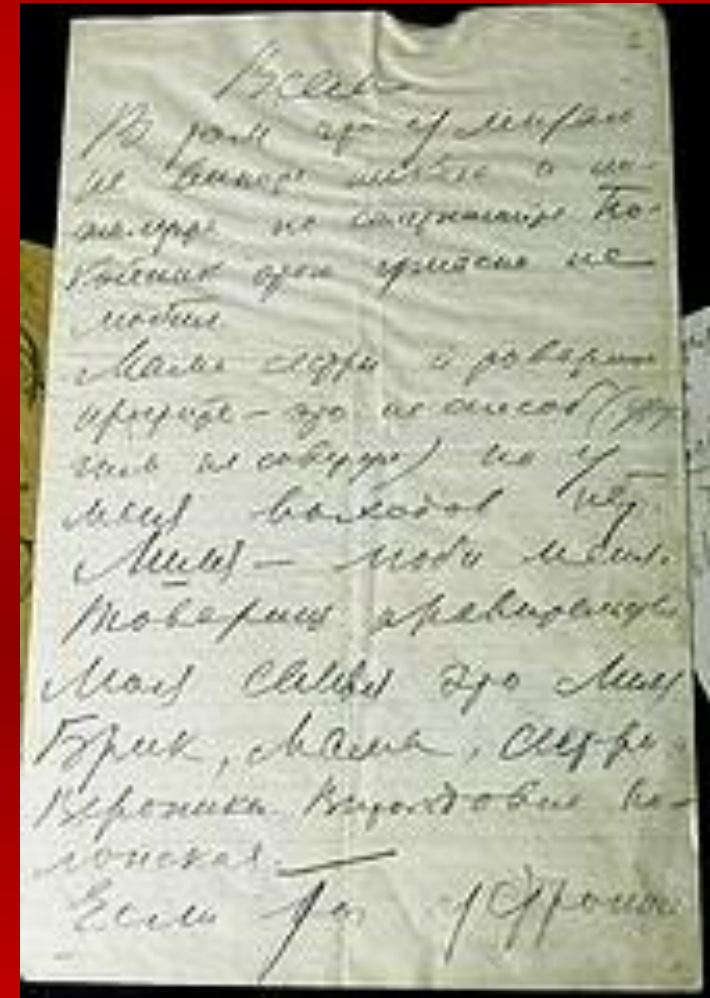 Всем
В том что умираю
не вините никого и по-
жалуйста не сплетничайте. По-
койник этого ужасно не
любил.
Мама сестры и товарищи
простите – это не способ (дру
гим не советую) но у
меня выходов нет.
Лиля – люби меня.
Товарищ правительство
моя семья это Лиля
Брик, мама, сестры
Вероника Витольдовна По-
лонская. –
Если ты устроишь